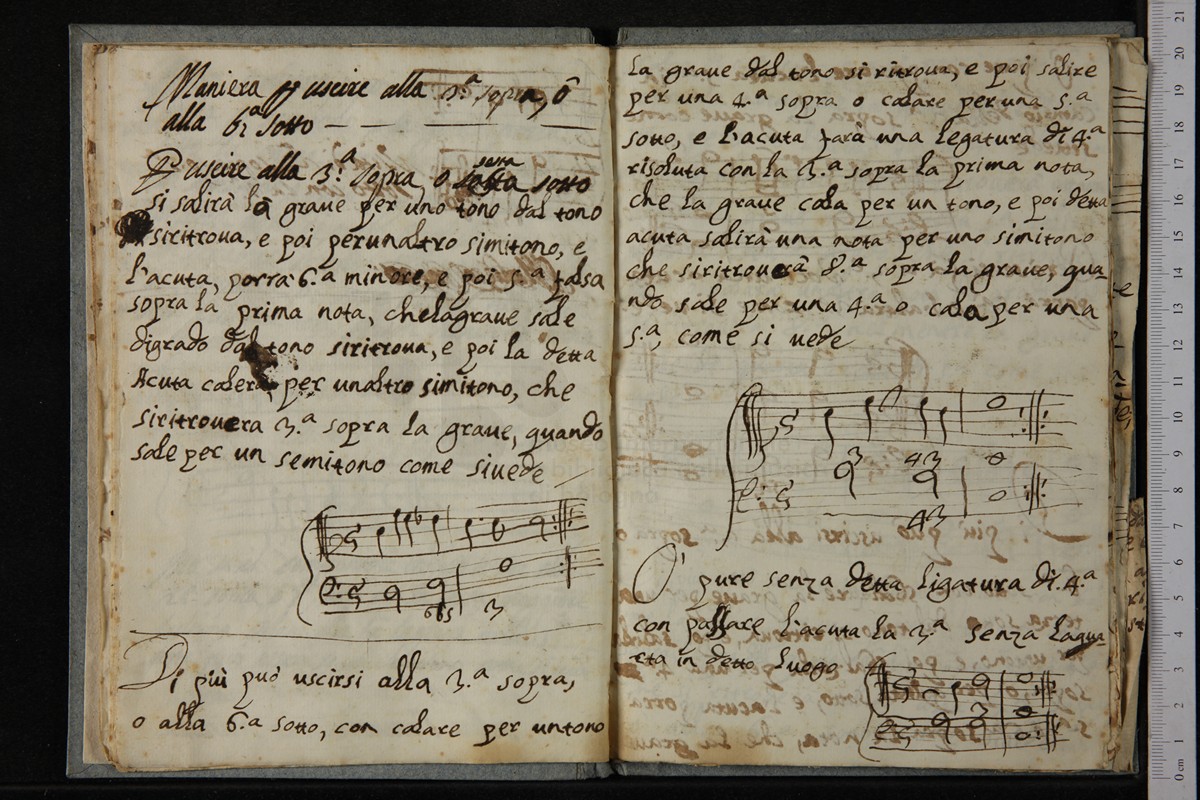 Maniera p uscire alla 3.ª sopra, ò
alla 6ª sotto
P uscire alla 3.ª sopra, o sesta sotto
si salirà la graue per uno tono dal tono
siritroua, e poi perunaltro simitono, e
l'acuta, porrà 6.ª minore, e poi 5.ª falsa
sopra la prima nota, chelagraue sale
digrado dal tono siritroua, e poi la detta
Acuta calerà per unaltro simitono, che
siritrouera 3.ª sopra la graue, quando
sale per un semitono come siuede
6 b5 3
Di più può uscirsi alla 3.ª sopra,
o alla 6.ª sotto, con calare per untono
la graue dal tono si ritroua, e poi salire
per una 4.ª sopra o calare per una 5.ª
sotto, e l'acuta farà una legatura di 4.ª
risoluta con la 3.ª sopra la prima nota,
che la graue cala per un tono, e poi detta
acuta salirà una nota per uno simitono
che siritrouerà 8.ª sopra la graue, qua
ndo sale per una 4.ª o cala per una
5.ª, come si uede
3 43
43
O' pure senza detta ligatura di 4.ª
con passare l'acuta la 3.ª senza laqua
rta in detto luogo
3